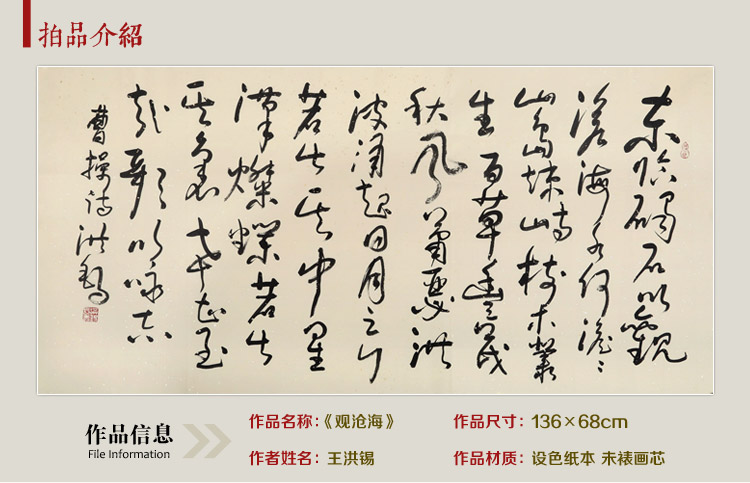 拍品介紹
东临碣石以觀
滄海水何澹々
山島竦峙树木叢
生百草豐茂
秋風蕭瑟洪
波涌起日月之行
若出其中星
漢燦爛若出
其裏幸甚至
哉歌以咏志
曹操诗洪錫
作品信息
File Information
作品名称：《观沧海》
作品尺寸：136×68cm
作者姓名：王洪锡
作品材质：设色纸本 未裱画芯